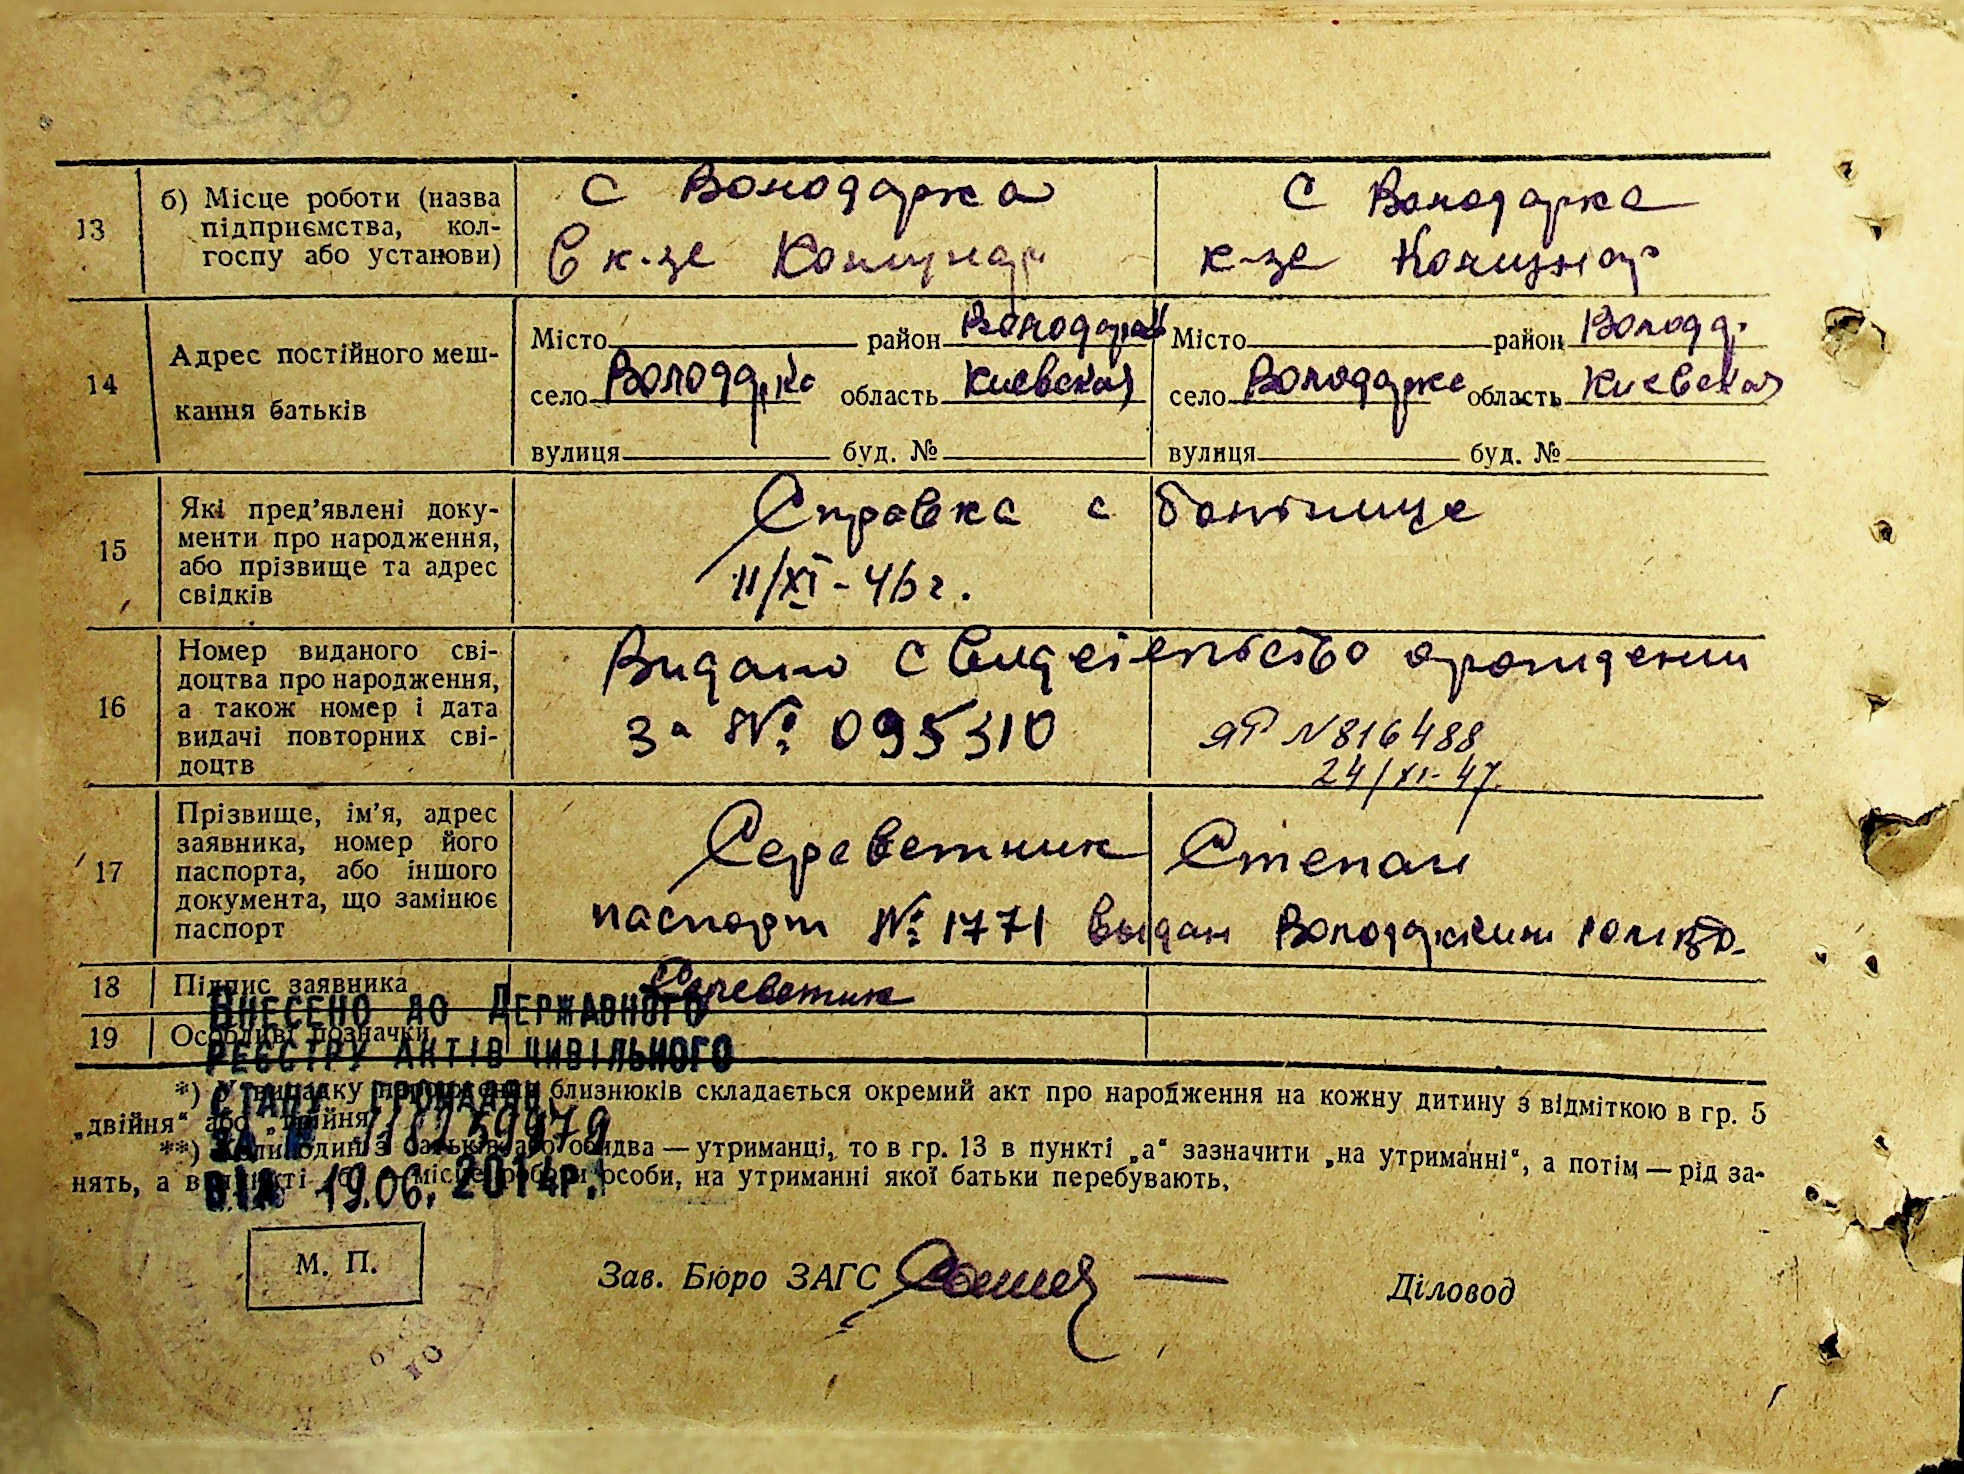 13
б) Місце роботи (назва
підприємства, кол-
госпу або установи)
с Володарка
В к-зе Комунар
с Володарка
к-зе Комунар
14
Адрес постійного меш-
кання батьків
Місто район Володарк
село Володарка область Киевская
вулиця буд. №
Місто район Володар.
село Володарка область Киевская
вулиця буд. №
15
Які пред’явлені доку-
менти про народження,
або прізвище та адрес
свідків
Справка с больнице
11/XI-46г.
16
Номер виданого сві-
доцтва про народження,
а також номер і дата
видачі повторних сві-
доцтв
Видано свидетельство о рождении
за № 095310
ЯТ N 816488
24/XI-47
17
Прізвище, ім’я, адрес
заявника, номер його
паспорта, або іншого
документа, що замінює
паспорт
Середетник Степан
паспорт № 1771 выдан
18
Підпис заявника
19
Особливі позначки
Внесено до Державного
реєстру актів цивільного
стану громадян
за №
від 19.06.2014р.
*) У випадку народження близнюків складається окремий акт про народження на кожну дитину з відміткою в гр. 5
„двійня“ або „трійня“
**) Коли один з батьків або обидва — утриманці, то в гр. 13 в пункті „а“ зазначити „на утриманні“, а потім — рід за-
нять, а в пункті „б“ місце роботи особи, на утриманні якої батьки перебувають,
М. П.
Зав. Бюро ЗАГС
Діловод